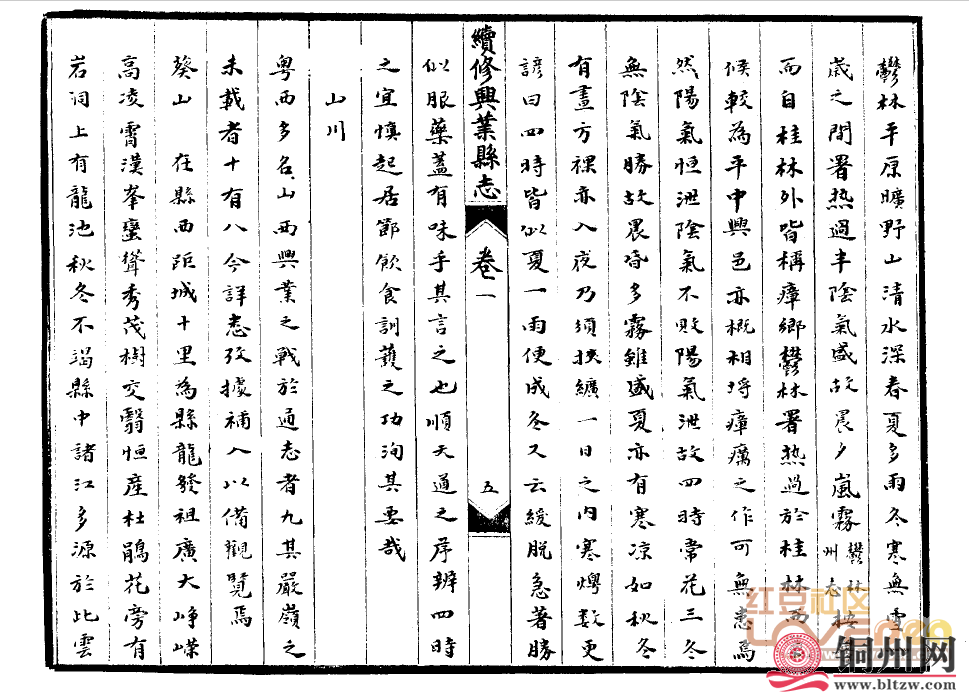 鬱林平原曠野山清水深春夏多雨冬寒無雪
歲之間署热過半陰氣盛故晨夕嵐霧鬱林州志按
而自桂林外皆稱瘴鄉鬱林署热過於桂林而
候較為平中興邑亦概相埒瘴癘之作可無恙焉
然陽氣恒泄陰氣不敗陽氣泄故四時常花三冬
無陰氣勝故晨昏多霧雖盛夏亦有寒凉如秋冬
有晝方裸亦入夜乃須挟纊一日之内寒燠数更
諺曰四時皆似夏一雨便成冬又云緩脱急著勝
續修興業縣志 卷一 五
似服藥蓋有味乎其言之也順天道之序辨四時
之宜慎起居節飲食訓護之功洵其要哉
山川
粤西多名山西興業之載於通志者九其嚴嶺之
未載者十有八今詳悉攷據補入以備觀覽焉
葵山 在縣西距城十里為縣龍發祖廣大崢嶸
高凌霄漢峯巒聳秀茂樹交翳恒産杜鵑花旁有
岩洞上有龍池秋冬不涸縣中諸江多源於此雲
红豆社区
铜州网
www.bltzw.com